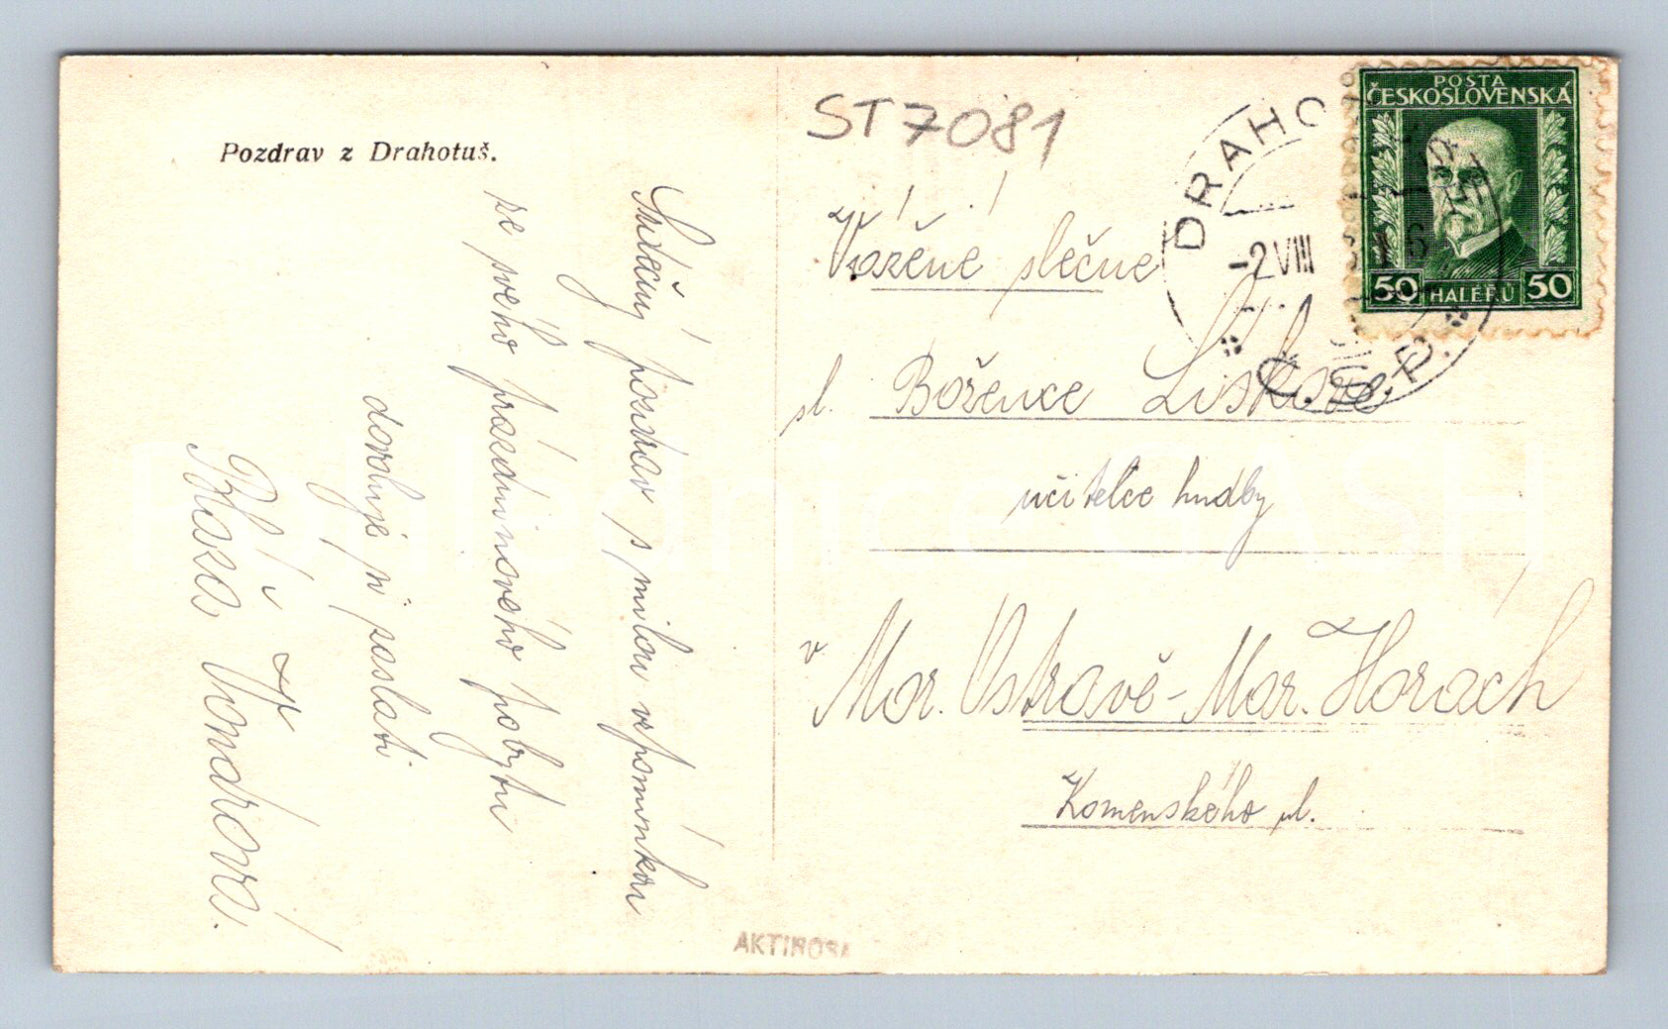 Pozdrav z Drahotuš.
Srdečný pozdrav s milou vzpomínkou
ze svého prázdninového pobytu
dovoluje si zaslati
Blaža Vondrová.
ST7081
Vážené slečně
sl. Božence Liškově
učitelce hudby
v Mor. Ostravě-Mor. Horách
Komenského ul.
POSTA
ČESKOSLOVENSKÁ
50 HALÉŘŮ 50
DRAHO
-2 VIII
Č.S.P.
AKTIROSA
Pohlednice SASH